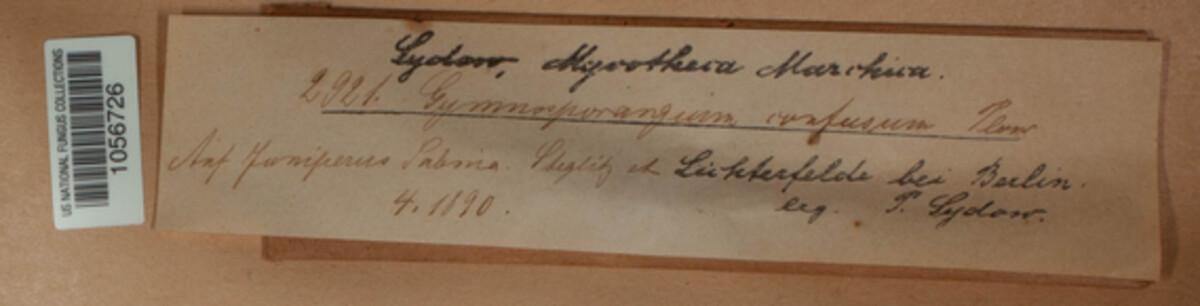 US NATIONAL FUNGUS COLLECTIONS
1056726
Sydow, Mycotheca Marchica.
2921. Gymnosporangium confusum Plowr
Auf Juniperus Sabina. Steglitz et Lichterfelde bei Berlin.
4. 1890. leg. P. Sydow.